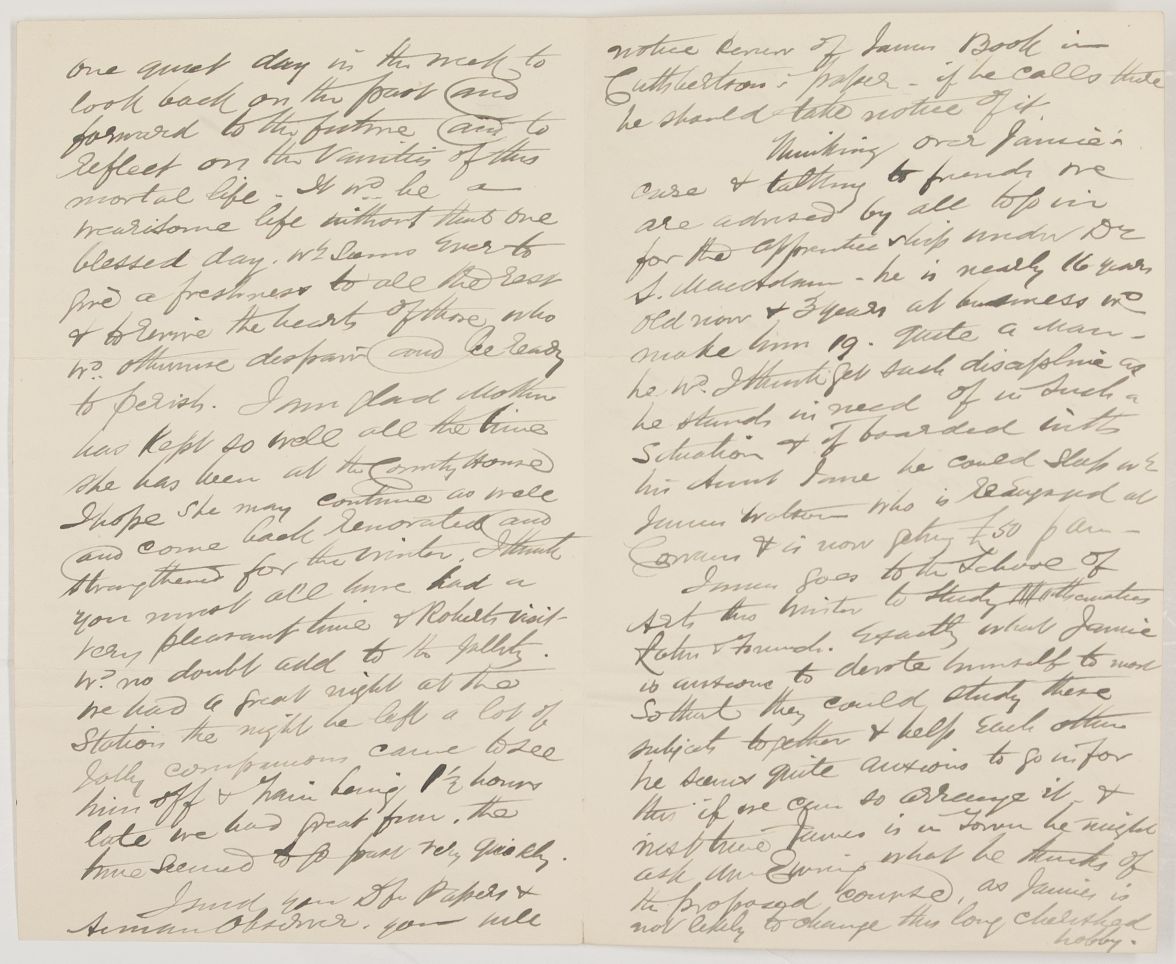 one quiet day in the week to
look back on the past and
forward to the future and to
reflect on the Vanities of this
mortal life - It wd. be a
wearisome life without that one
blessed day. wh. Seems Ever to
give a freshness to all the rest
& to revive the hearts of those who
wd. otherwise despair and be ready
to perish. I am glad Mother
has kept so well all the time
she has been at the County House
I hope she may continue as well
and come back renovated and
strengthened for the winter. I think
you must all have had a
very pleasant time & Roberts visit
wd. no doubt add to the jollity.
we had a great night at the
Station the night he left a lot of
Jolly companions came to see
him off & train being 1½ hours
late we had great fun, the
time seemed to go past very quickly.
I send you Papers &
Observer. you will
notice review of James Book in
Cuthbertson's paper - if he calls there
he should take notice of it
Thinking over Jamie's
case & talking to friends we
are advised by all to go in
for the apprenticeship under Dr
S. Macadam - he is nearly 16 years
old now & 3 years at business wd
make him 19. quite a Man -
he wd. I think get such discipline as
he stands in need of in such a
Situation & if boarded with
his Aunt Jane he could sleep wh
James Watson who is reengaged at
Cowans & is now getting £50 p an -
James goes to the School of
Arts this Winter to study Mathematics
Latin & French. Exactly what Jamie
is anxious to devote himself to most
So that they could study these
subjects together & help each other
he seems quite anxious to go in for
this if we can so arrange it &
next time James is in Town he might
ask Mr Ewing what he thinks of
the proposed course, as Jamie is
not likely to change this long cherished
hobby.